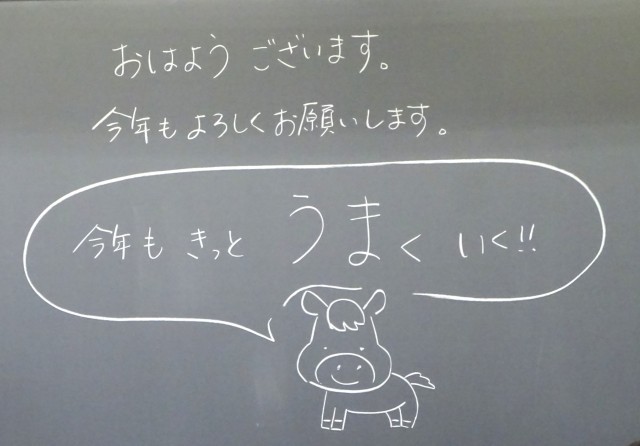 おはよう ございます。
今年も よろしくお願いします。
今年も きっと うまく いく!!